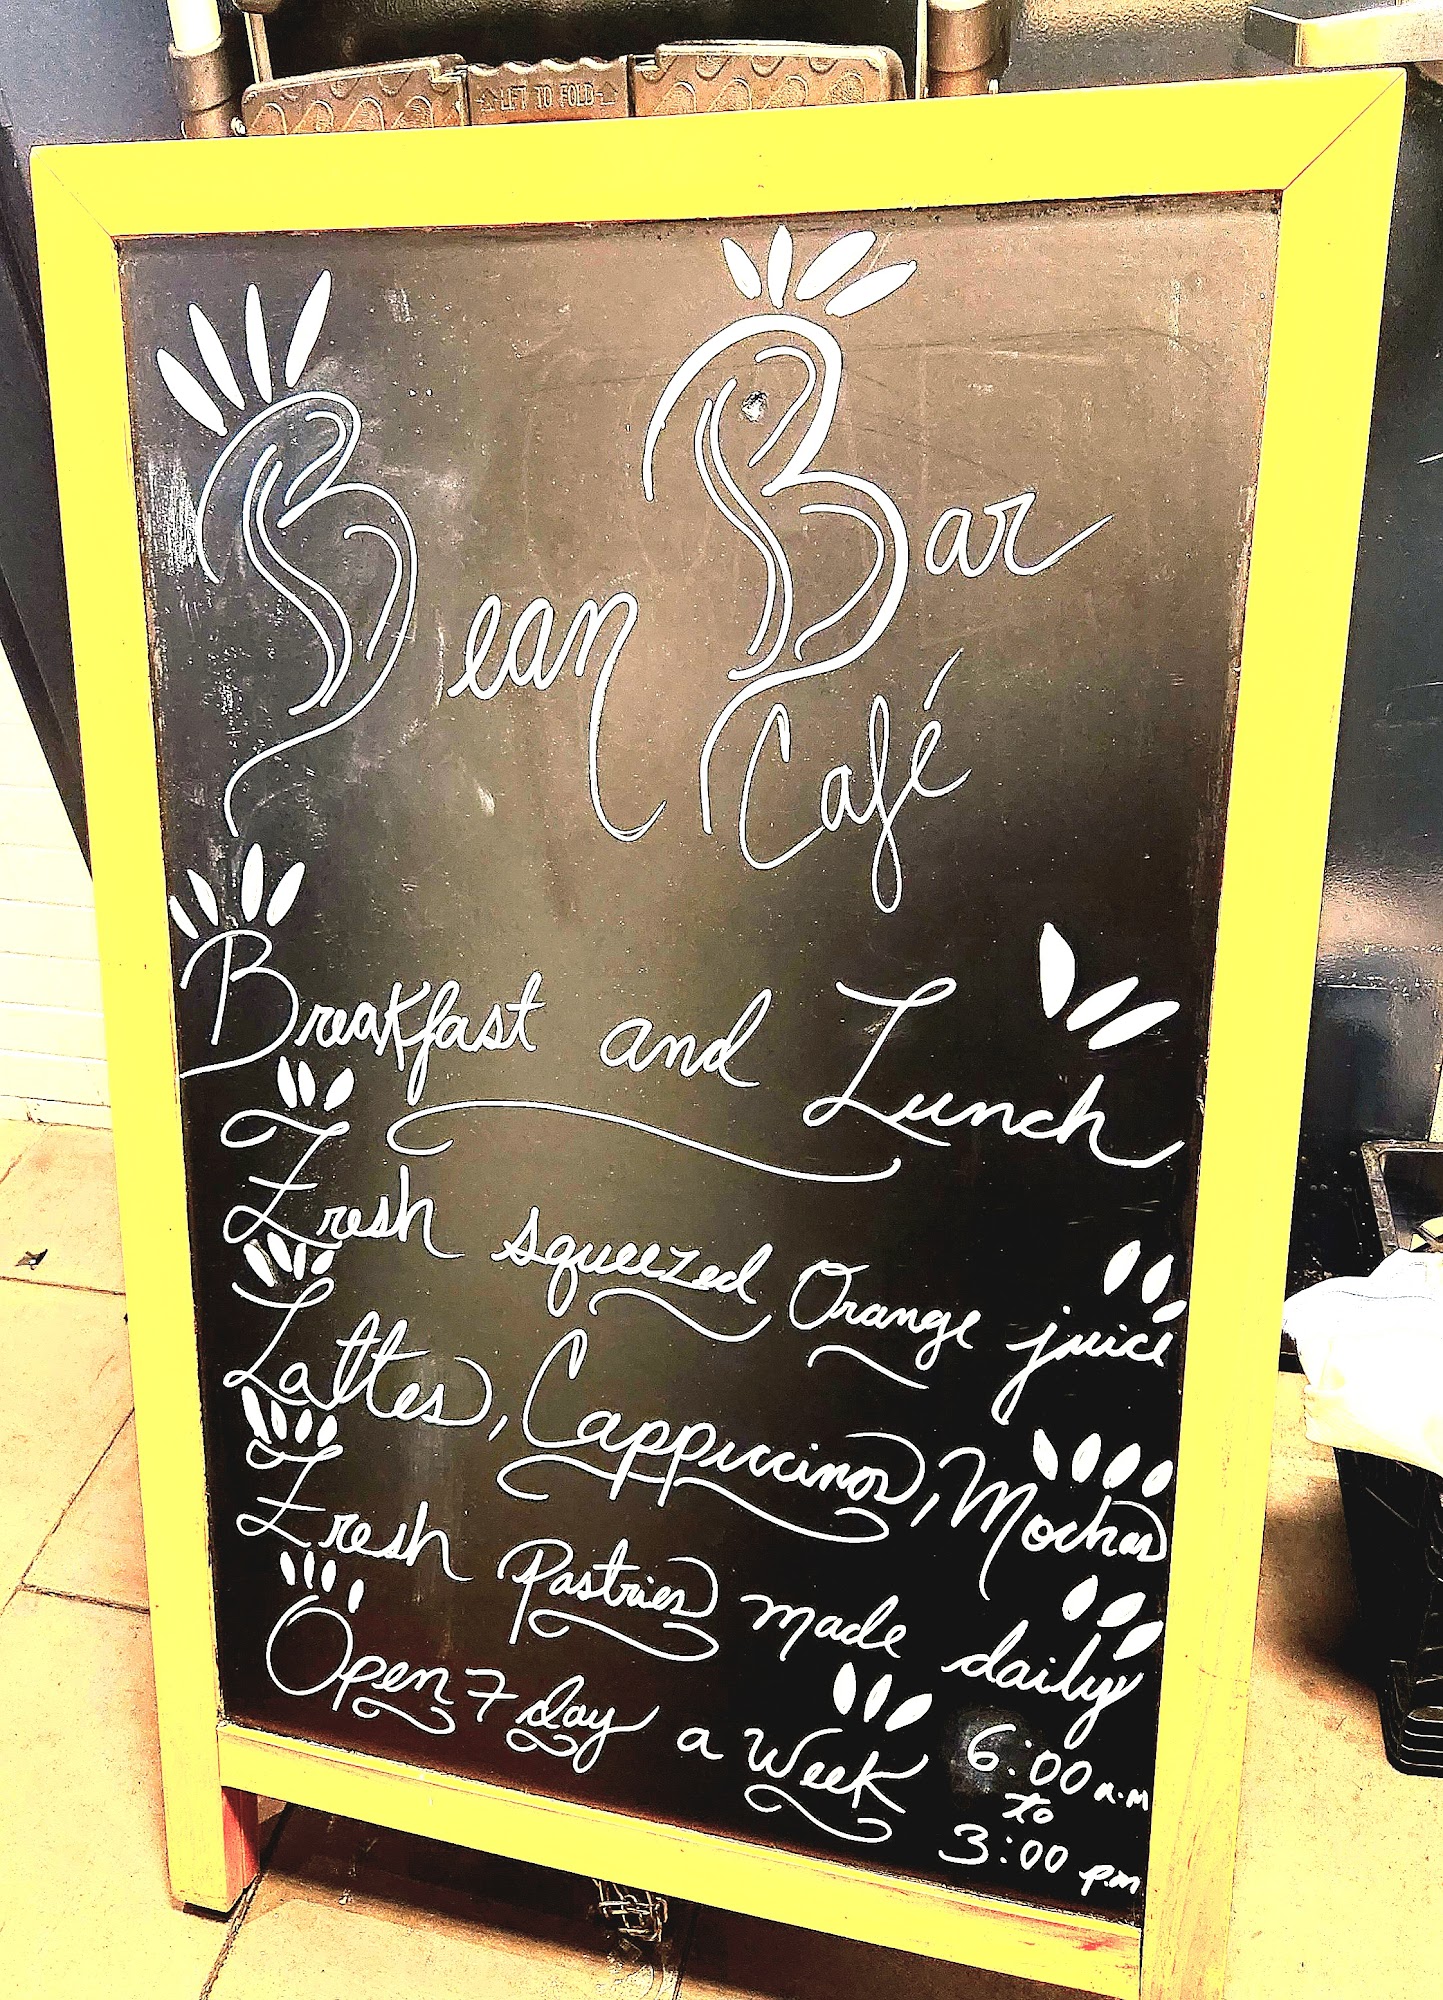 LIFT TO FOLD
Bean Bar
Café
Breakfast and Lunch
Fresh squeezed Orange juice
Lattes, Cappuccinos, Mochas
Fresh Pastries made daily
Open 7 day a Week 6:00 a.m
to
3:00 p.m